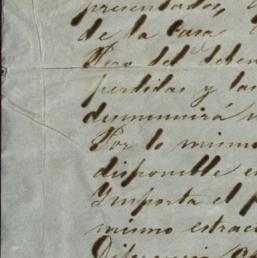 presentados,
de la Casa
Pero del deben
perdidas y las
desminuirá
Por lo mismo
disponible e
Importa el
mismo estrac
Diferencia